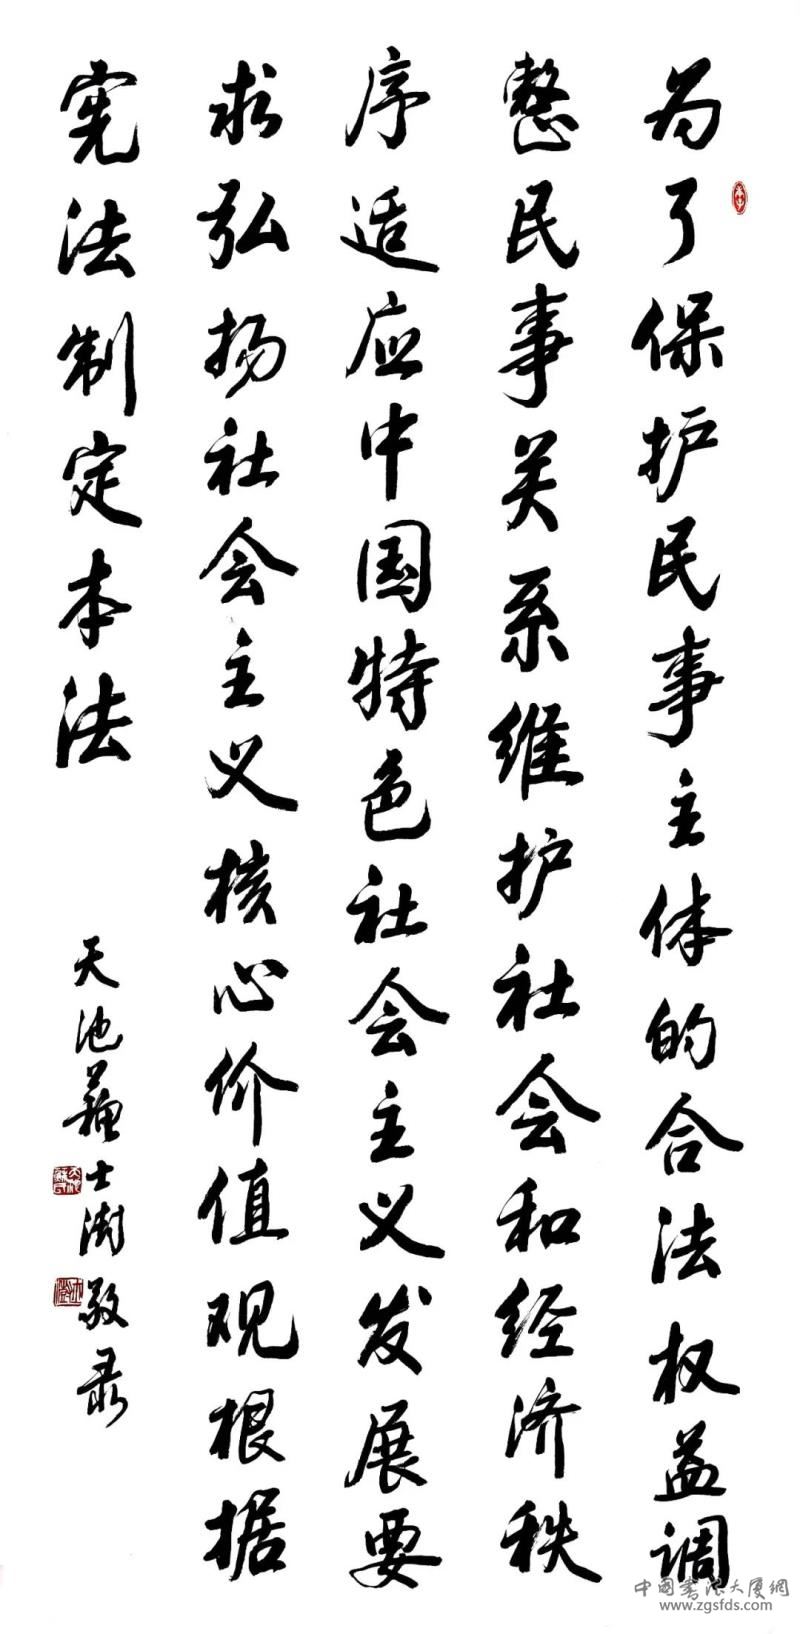 为了保护民事主体的合法权益调
整民事关系维护社会和经济秩
序适应中国特色社会主义发展要
求弘扬社会主义核心价值观根据
宪法制定本法
天池苏士澍敬录
中国书法大厦网
www.zgsfds.com